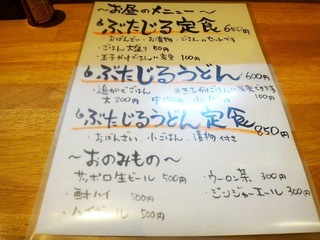 ～お昼のメニュー～
ぶたじる定食 650円
・おばんざい・お漬物・ごはんのセットです
・ごはん大盛り 50円
・玉子かけごはんに変更 100円
ぶたじるうどん 600円
・追加でごはん
大200円 中150円 小100円
100円
ぶたじるうどん定食 850円
・おばんざい、小ごはん、漬物付き
～おのみもの～
・サッポロ生ビール 500円 ・ウーロン茶 300円
・酎ハイ 500円 ・ジンジャーエール 300円
・ハイボール 500円